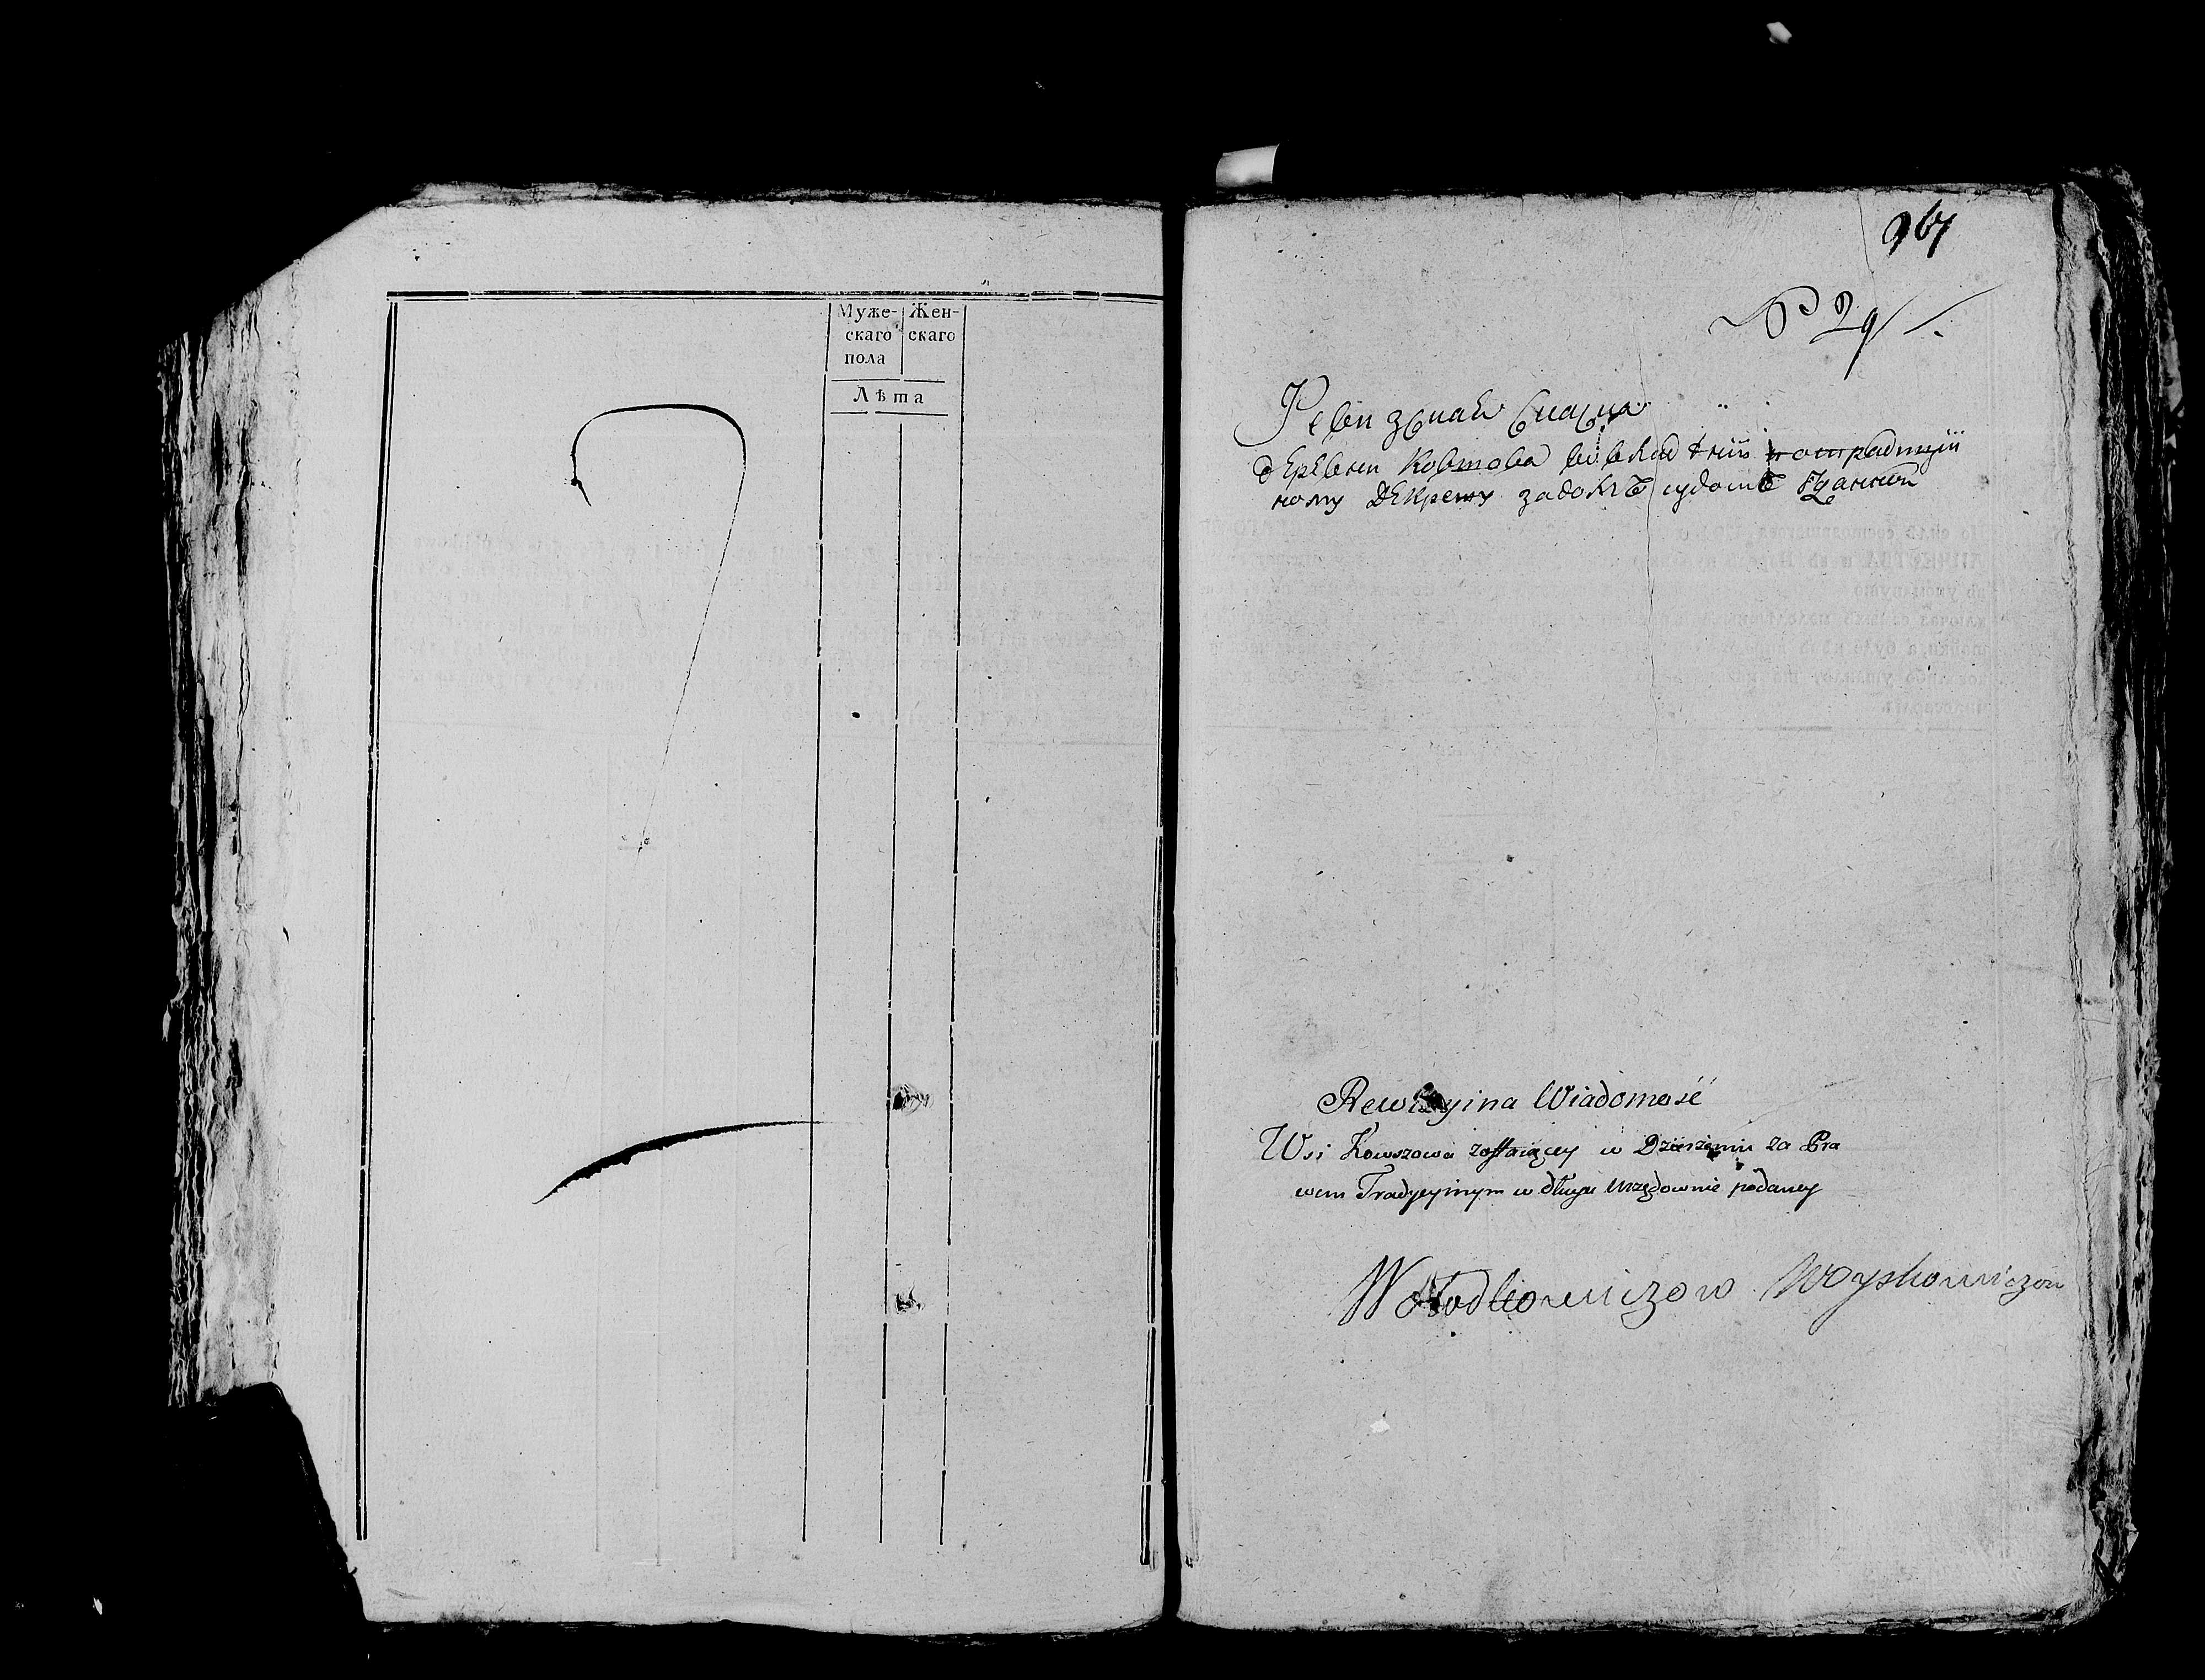 Муже- Жен-
скаго скаго
пола
Лѣта
967
№ 29
Ревизская Сказка
деревни Ковшова во владѣнии
ному Декрету за долгъ судомъ
Rewizyina Wiadomość
Wsi Kowszowa zostaiącey w Dzierżeniu za Pra
wem Tradycyinym w długu Urzędownie podaney
Wołodkowiczow Wyszkowiczow